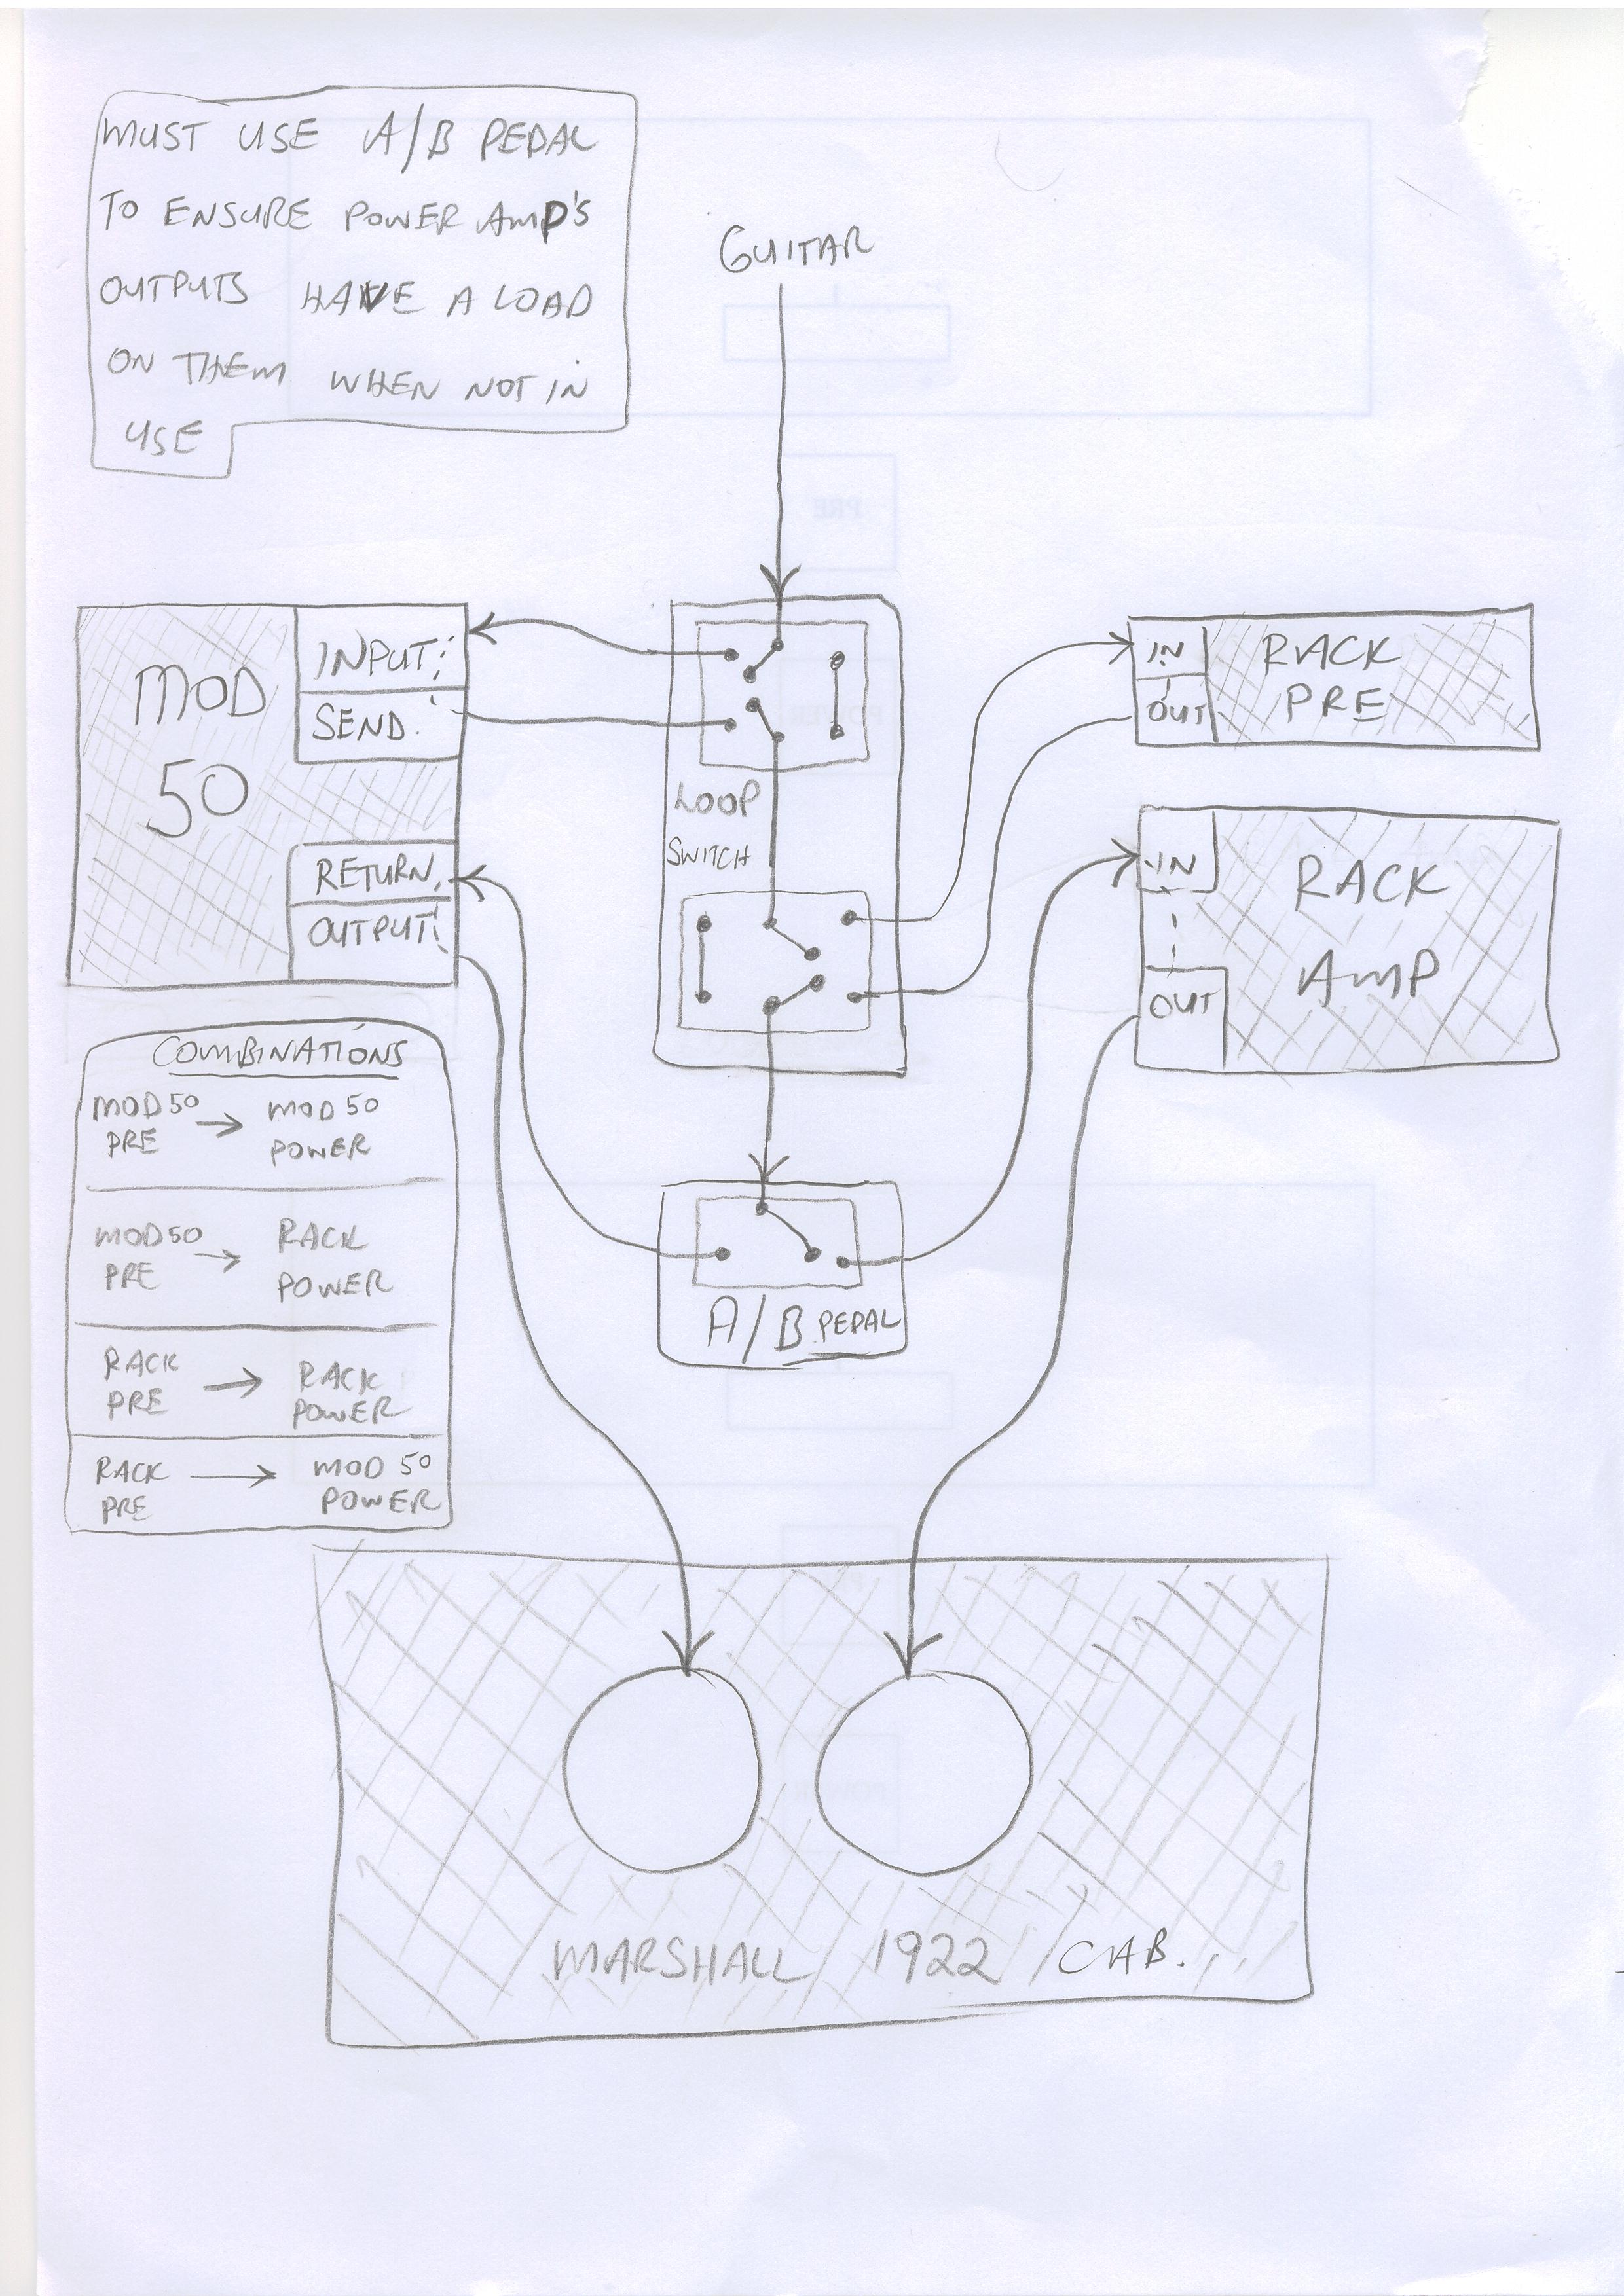 MUST USE A/B PEDAL
TO ENSURE POWER AMP'S
OUTPUTS HAVE A LOAD
ON THEM WHEN NOT IN
USE
GUITAR
MOD
50
INPUT
SEND
RETURN
OUTPUT
LOOP
SWITCH
IN
OUT
RACK
PRE
IN
OUT
RACK
AMP
A/B PEDAL
COMBINATIONS
MOD 50 → MOD 50
PRE POWER
MOD 50 → RACK
PRE POWER
RACK → RACK
PRE POWER
RACK → MOD 50
PRE POWER
MARSHALL 1922 CAB.
PRE
POWER
POWER